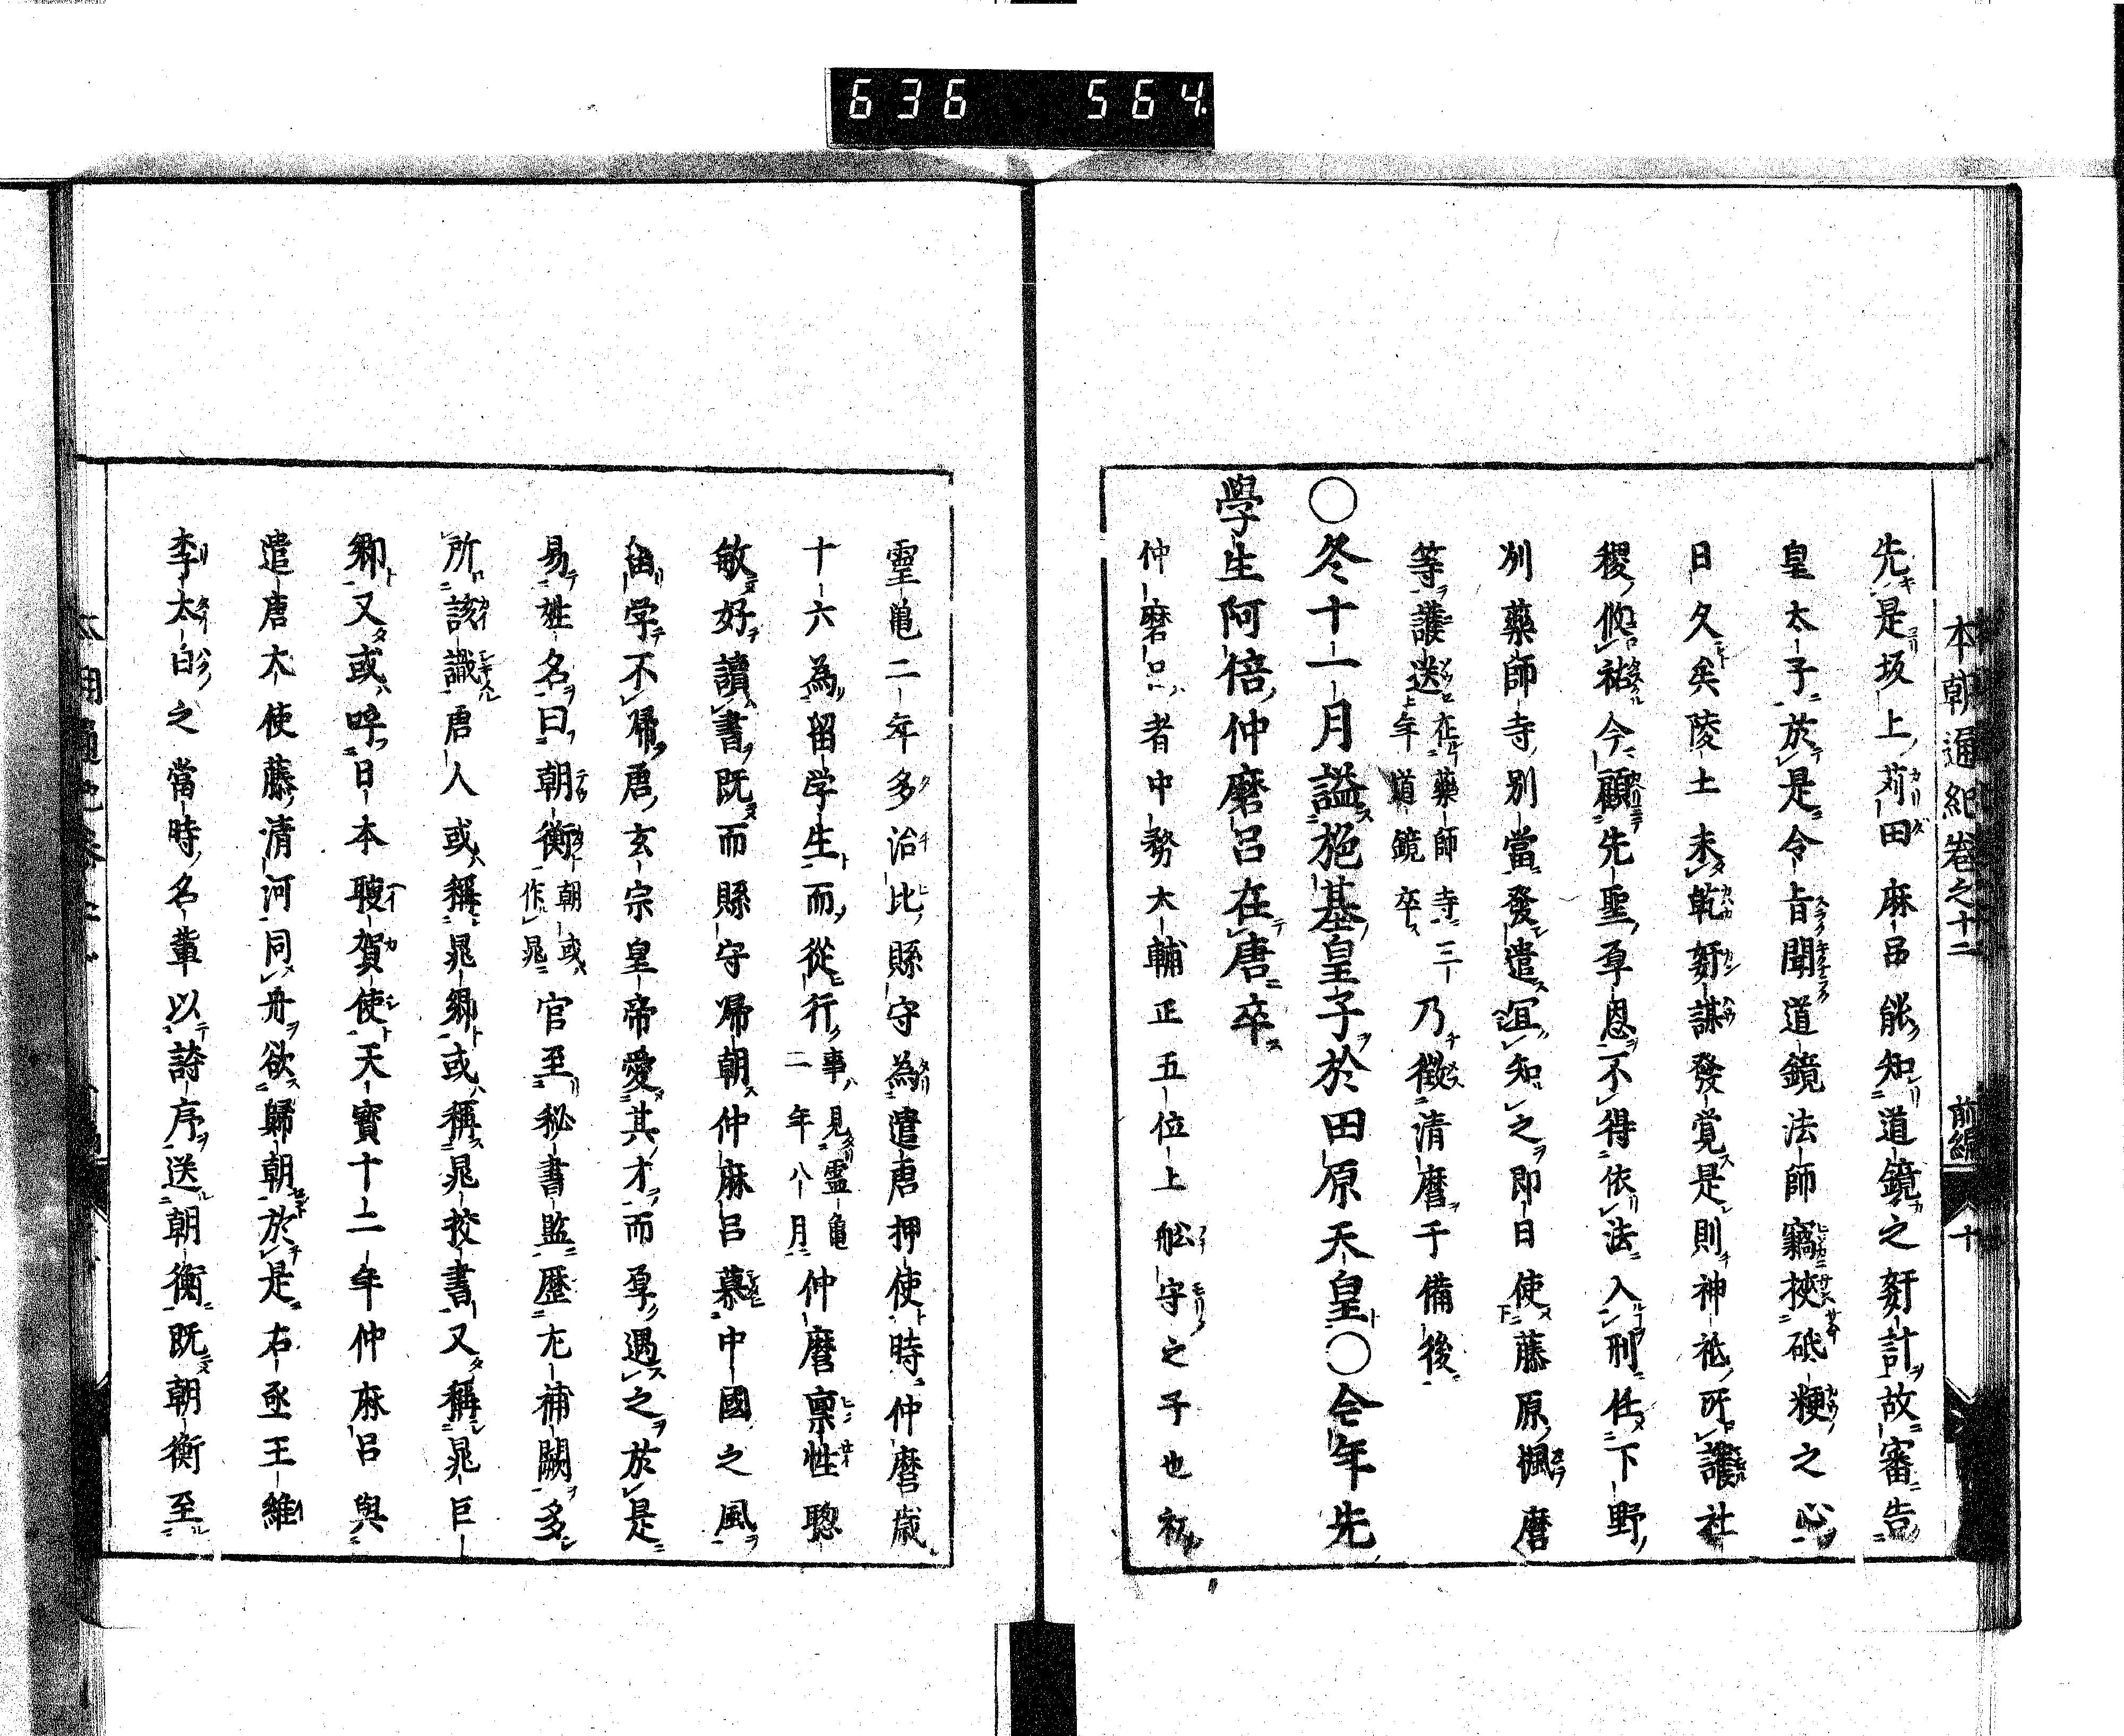 636 564.
本朝通紀卷之十二 前編 十
先是坂上苅田麻呂能知道鏡之姧計故審告
皇太子於是令旨聞道鏡法師竊挾䑛粳之心
日久矣陵土未乾姧謀發覚是則神祇所護社
稷攸祐今顧先聖厚恩不得依法入刑任下野
列藥師寺別當發遣宜知之即日使藤原楓麿
等護送在藥師寺三年道鏡卒乃徵清麿于備後
○冬十一月謚施基皇子於田原天皇○仝年先
學生阿倍仲磨呂在唐卒
仲磨呂者中務大輔正五位上舩守之子也初
靈亀二年多治比縣守為遣唐押使時仲麿歳
十六為留学生而從行事見靈亀二年八月仲麿禀性聦
敏好讀書既而縣守帰朝仲麻呂慕中國之風
留学不帰唐玄宗皇帝愛其才而厚遇之於是
易姓名曰朝衡朝或作晁官至秘書監歷左補闕多
所該識唐人或稱晁卿或稱晁挍書又稱晁巨
卿又或呼日本聘賀使天寳十二年仲麻呂與
遣唐大使藤清河同舟欲歸朝於是右丞王維
李太白之當時名輩以詩序送朝衡既朝衡至